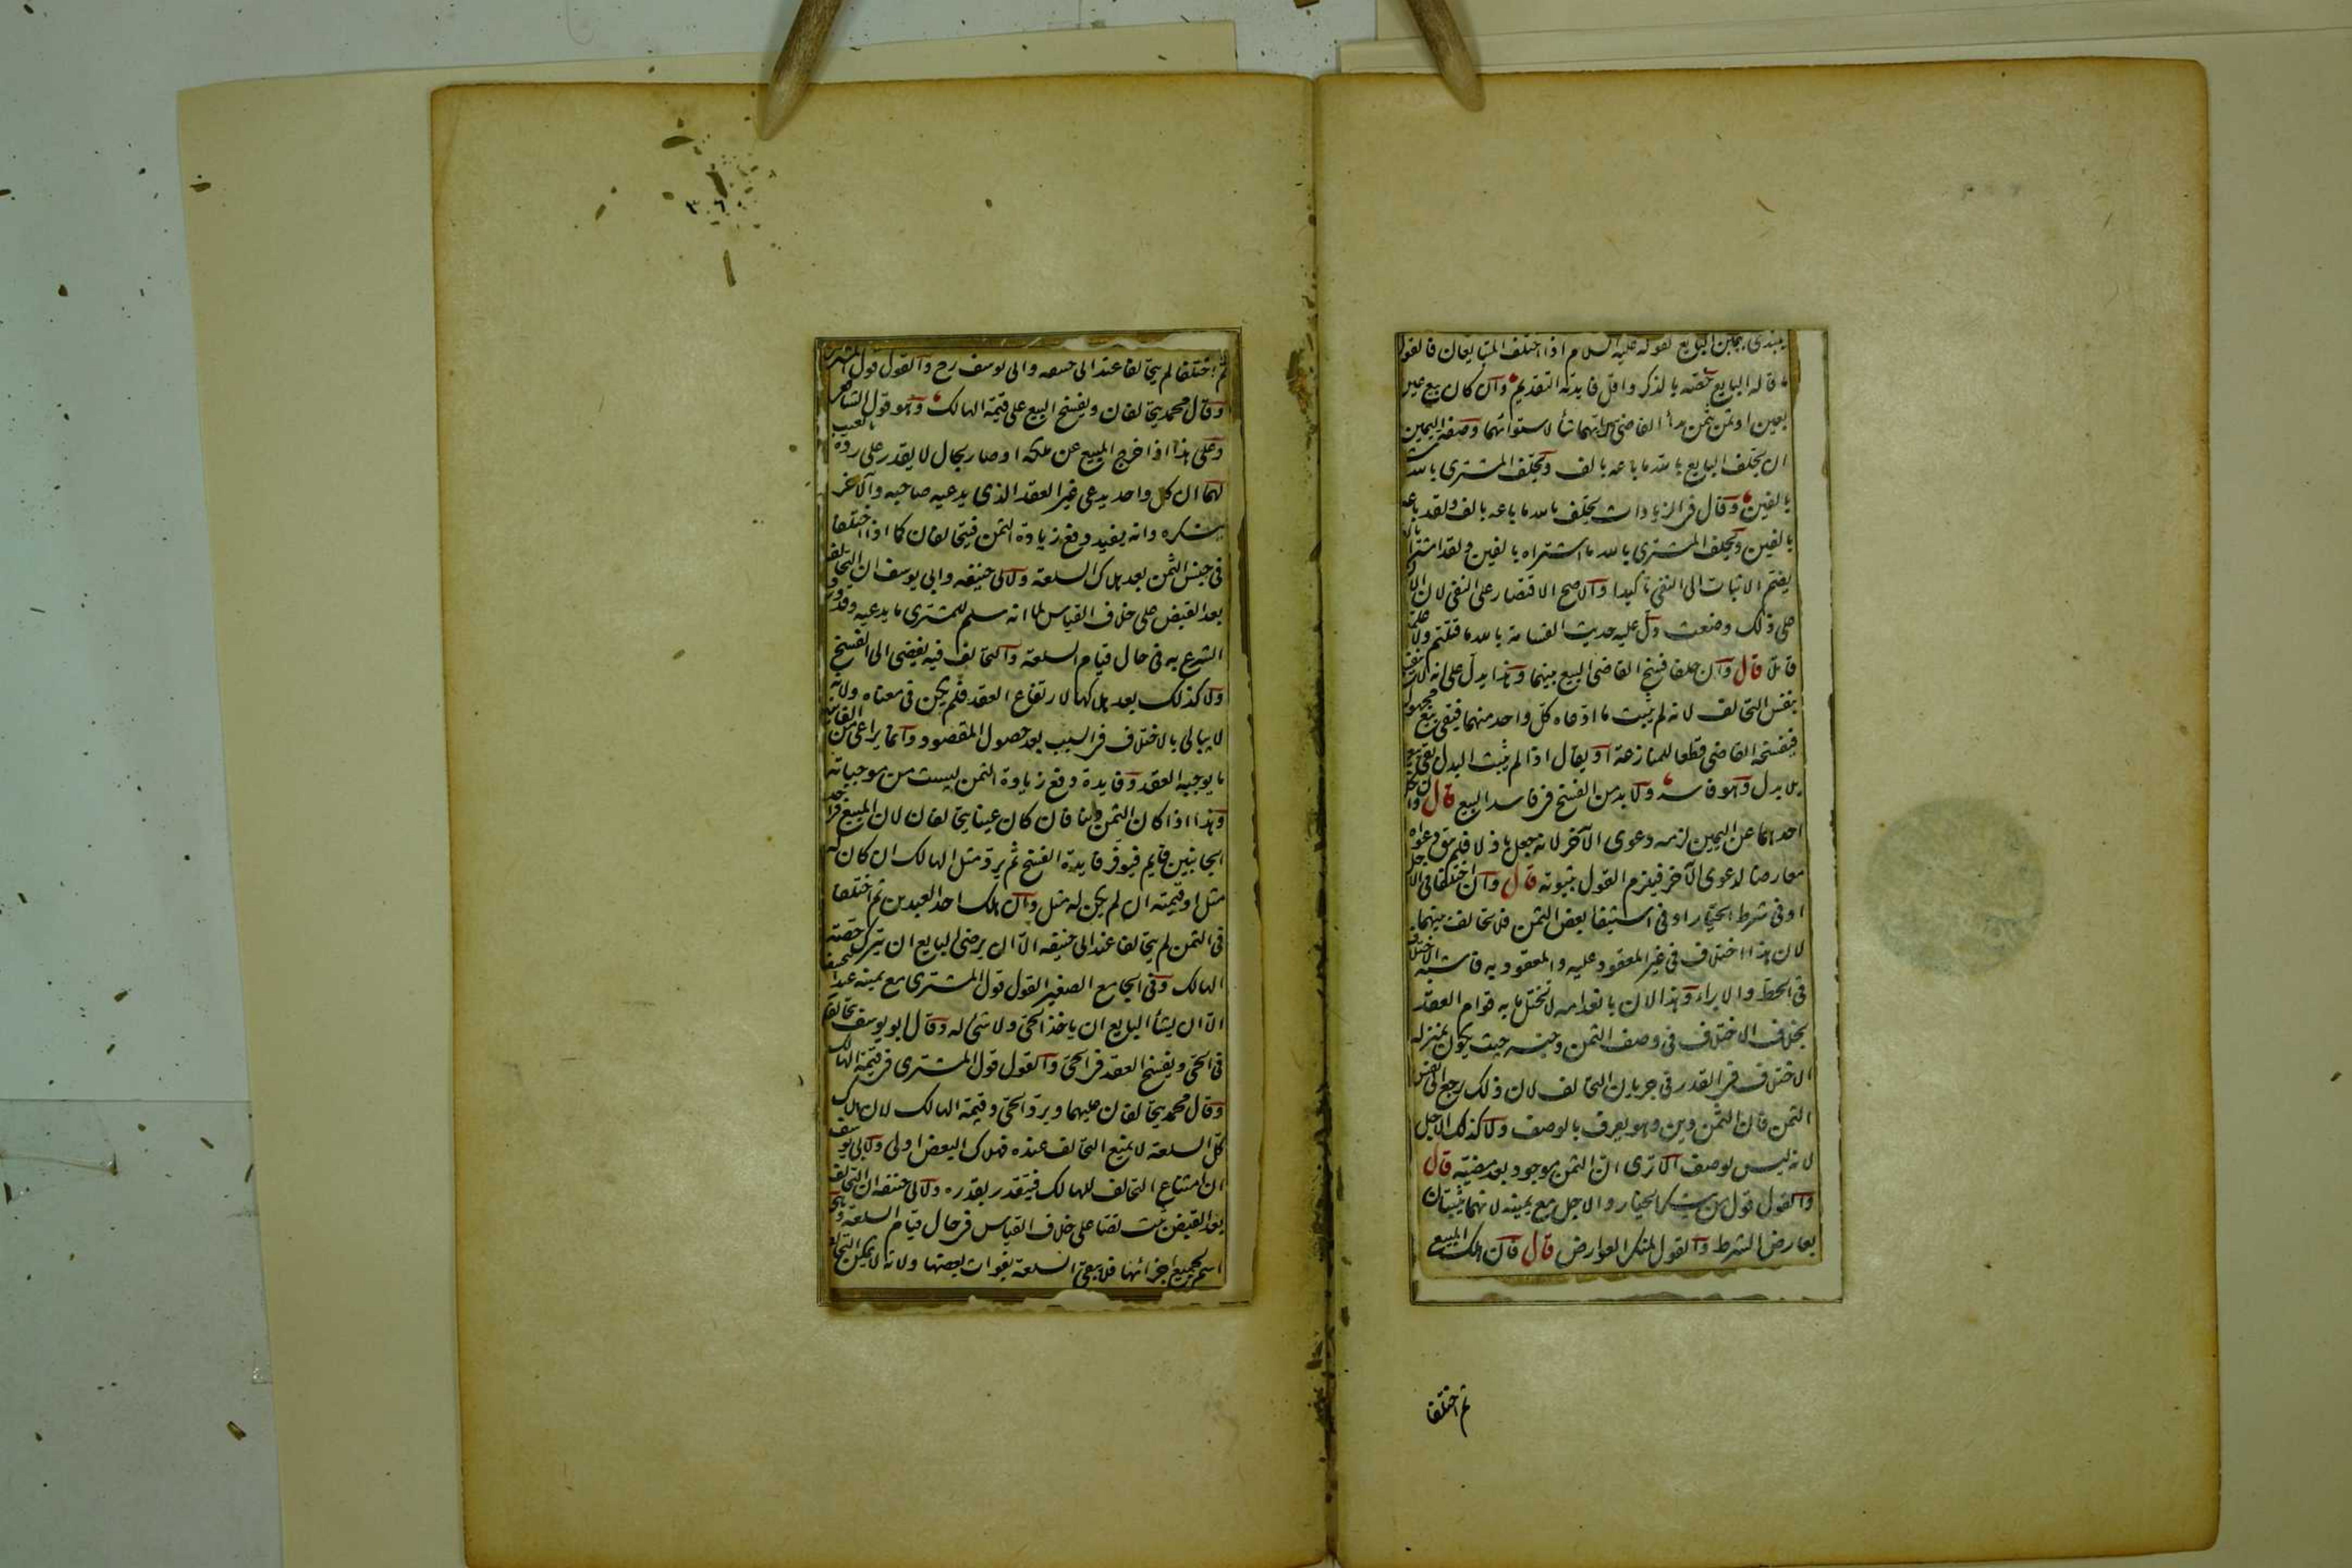 يبتدى بيمين البايع لقوله عليه السلام اذا اختلف المتبايعان فالقول
ما قاله البايع خصه بالذكر واقل فايدته التقديم وان كان بيع عين
بعين او ثمن بثمن بدأ القاضى بيمين ايهما شأ لاستوائهما وصفة اليمين
ان يحلف البايع بالله ما باعه بالف ويحلف المشترى بالله
بالفين وقال فى الزيادات يحلف بالله ما باعه بالف ولقد باعه
بالفين ويحلف المشترى بالله ما اشتراه بالفين ولقد اشتراه
يضم الاثبات الى النفى تاكيدا والاصح الاقتصار على النفى لان
على ذلك وضعت دل عليه حديث القسامة بالله ما قتلتم ولا علمتم
قاتلا قال وان حلفا فسخ القاضى البيع بينهما وهذا يدل على انه لا ينفسخ
بنفس التحالف لانه لم يثبت ما ادعاه كل واحد منهما فيبقى بيع مجهول
فيفسخه القاضى قطعا للمنازعة او يقال اذا لم يثبت البدل يبقى بيع
بلا بدل وهو فاسد ولا بد من الفسخ فى فاسد البيع قال وان نكل
احدهما عن اليمين لزمه دعوى الآخر لانه جعل باذلا فلم يبق دعواه
معارضا لدعوى الآخر فيلزم القول بثبوته قال وان اختلفا فى الاجل
او فى شرط الخيار او فى استيفا بعض الثمن فلا تحالف بينهما
لان هذا اختلاف فى غير المعقود عليه والمعقود به فاشبه الاختلاف
فى الحط والابراء وهذا لان بانعدامه لا يختل ما به قوام العقد
بخلاف الاختلاف فى وصف الثمن وجنسه حيث يكون بمنزلة
الاختلاف فى القدر فى جريان التحالف لان ذلك يرجع الى نفس
الثمن فان الثمن دين وهو يعرف بالوصف ولا كذلك الاجل
لانه ليس بوصف الا ترى ان الثمن موجود بعد مضيه قال
والقول قول من ينكر الخيار والاجل مع يمينه لانهما يثبتان
بعارض الشرط والقول لمنكر العوارض قال فان هلك المبيع
ثم اختلفا
ثم اختلفا لم يتحالفا عند ابى حنيفه وابى يوسف رح والقول قول المشترى
وقال محمد يتحالفان ويفسخ البيع على قيمة الهالك وهو قول الشافعى
وعلى هذا اذا خرج المبيع عن ملكه او صار بحال لا يقدر على رده بالعيب
لهما ان كل واحد يدعى غير العقد الذى يدعيه صاحبه والآخر
ينكره وانه يفيد دفع زيادة الثمن فيتحالفان كما اذا اختلفا
فى جنس الثمن بعد هلاك السلعة ولابى حنيفه وابى يوسف ان التحالف
بعد القبض على خلاف القياس لما انه سلم للمشترى ما يدعيه وقد ورد
الشرع به فى حال قيام السلعة والتحالف فيه يفضى الى الفسخ
ولا كذلك بعد هلاكها لارتفاع العقد فلم يكن فى معناه ولانه
لا يبالى بالاختلاف فى السبب بعد حصول المقصود وانما يراعى من الفايدة
ما يوجبه العقد وفايدة دفع زيادة الثمن ليست من موجباته
وهذا اذا كان الثمن دينا فان كان عينا يتحالفان لان المبيع فى احد
الجانبين قايم فيوفر فايدة الفسخ ثم يرد مثل الهالك ان كان له
مثل او قيمته ان لم يكن له مثل وان هلك احد العبدين ثم اختلفا
فى الثمن لم يتحالفا عند ابى حنيفه الا ان يرضى البايع ان يترك حصة
الهالك وفى الجامع الصغير القول قول المشترى مع يمينه عند ابى حنيفه
الا ان يشأ البايع ان ياخذ الحى ولا شئ له وقال ابو يوسف يتحالفا
فى الحى ويفسخ العقد فى الحى والقول قول المشترى فى قيمة الهالك
وقال محمد يتحالفان عليهما ويرد الحى وقيمة الهالك لان هلاك
كل السلعة لا يمنع التحالف عنده فهلاك البعض اولى ولابى يوسف
ان امتناع التحالف للهالك فيتقدر بقدره ولابى حنيفه ان التحالف
بعد القبض ثبت نصا على خلاف القياس فى حال قيام السلعة وهى
اسم لجميع اجزائها فلا يبقى السلعة بفوات بعضها ولانه لا يمكن التحالف